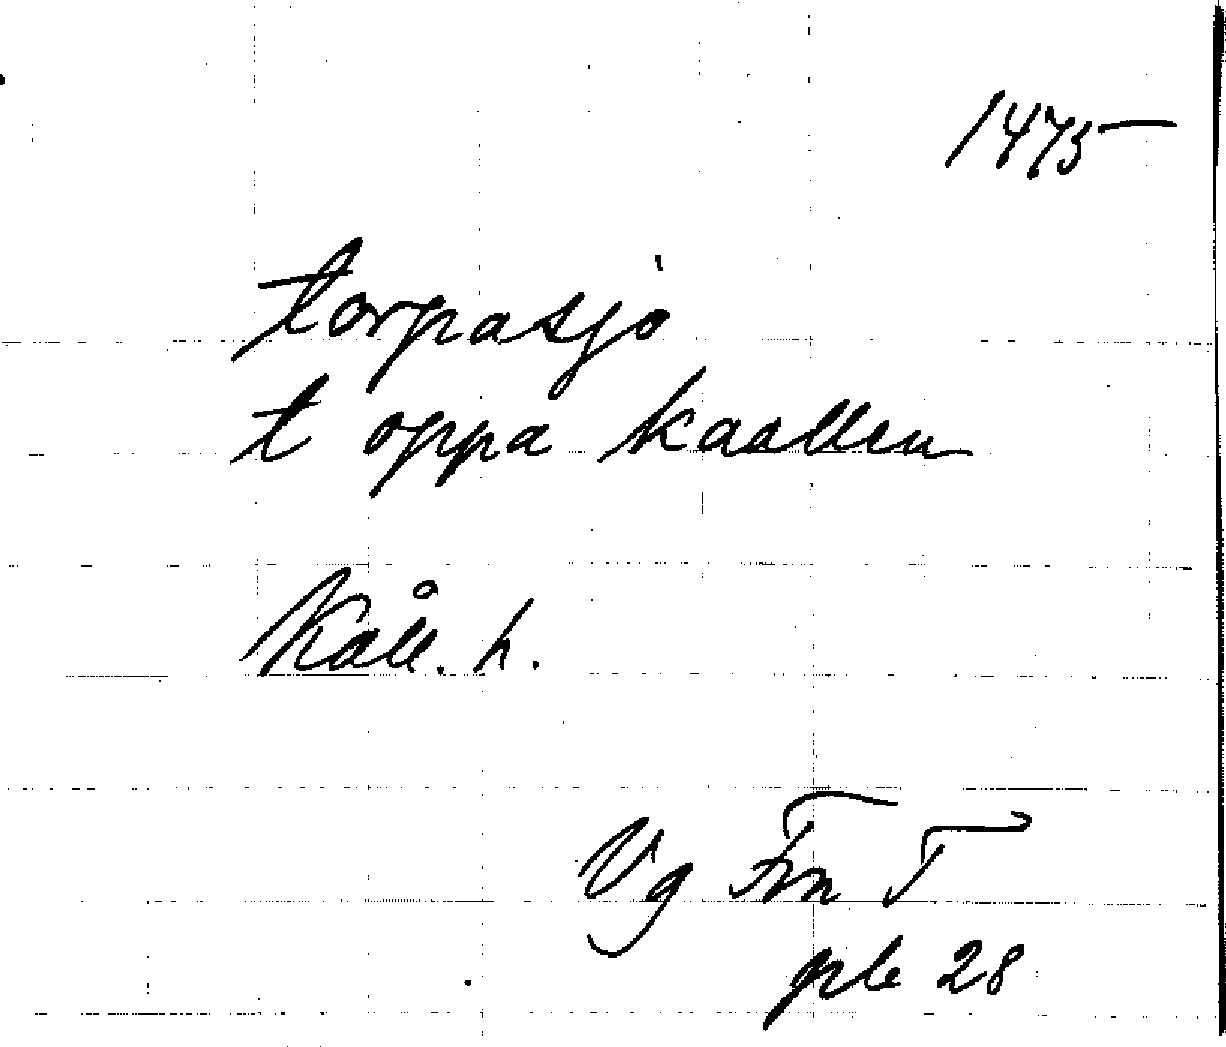 1475
torpasjö
t oppa kaallen
Kåll. h.
Vg Frn T
prle 28